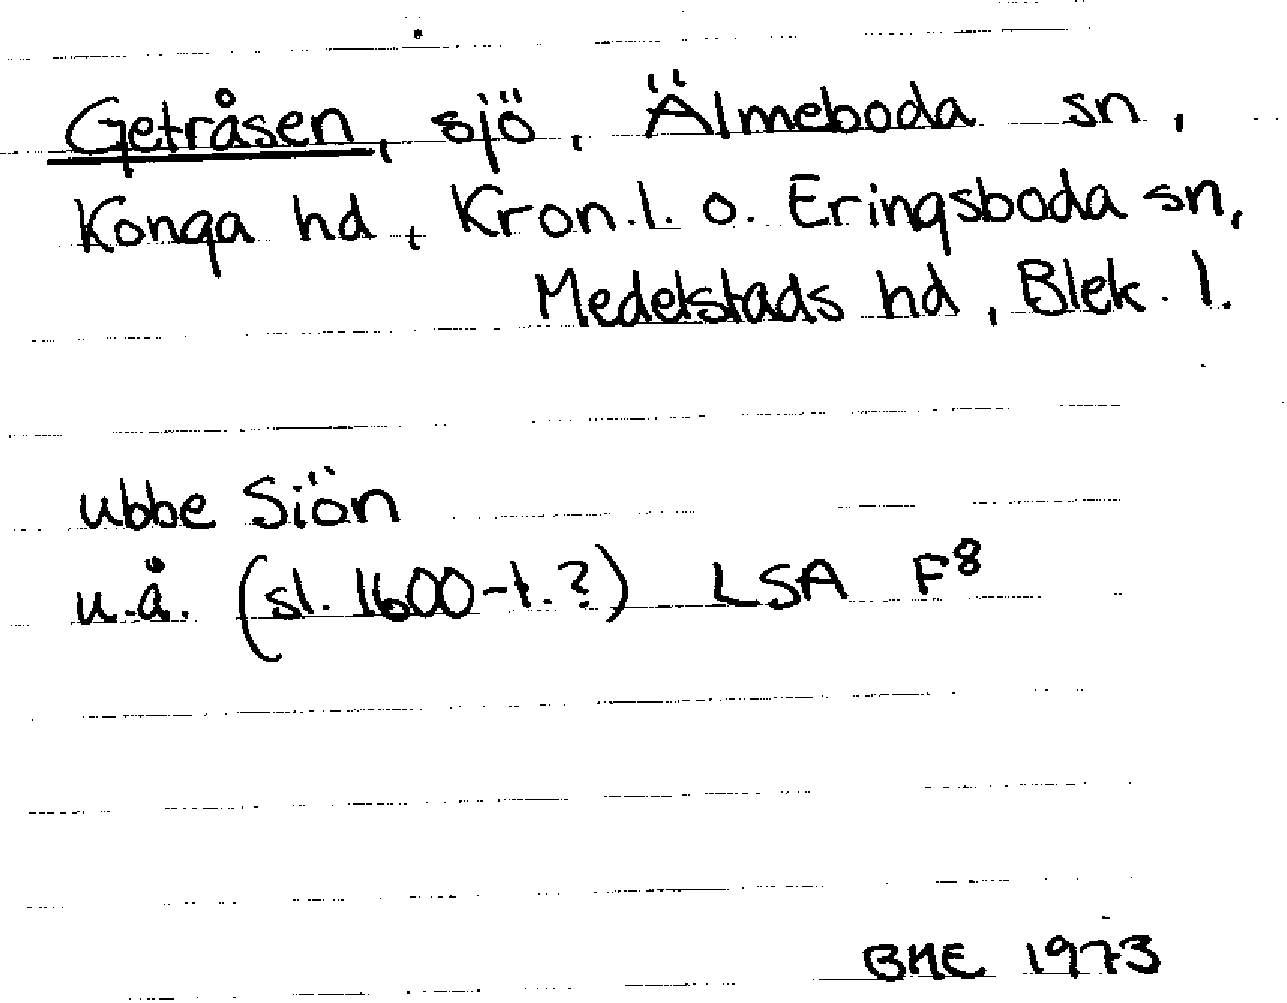 Getråsen, sjö, Älmeboda sn,
Konga hd, Kron.l. o. Eringsboda sn,
Medelstads hd, Blek. l.
ubbe Siön
u.å. (sl. 1600-t.?) LSA F8
BME 1973